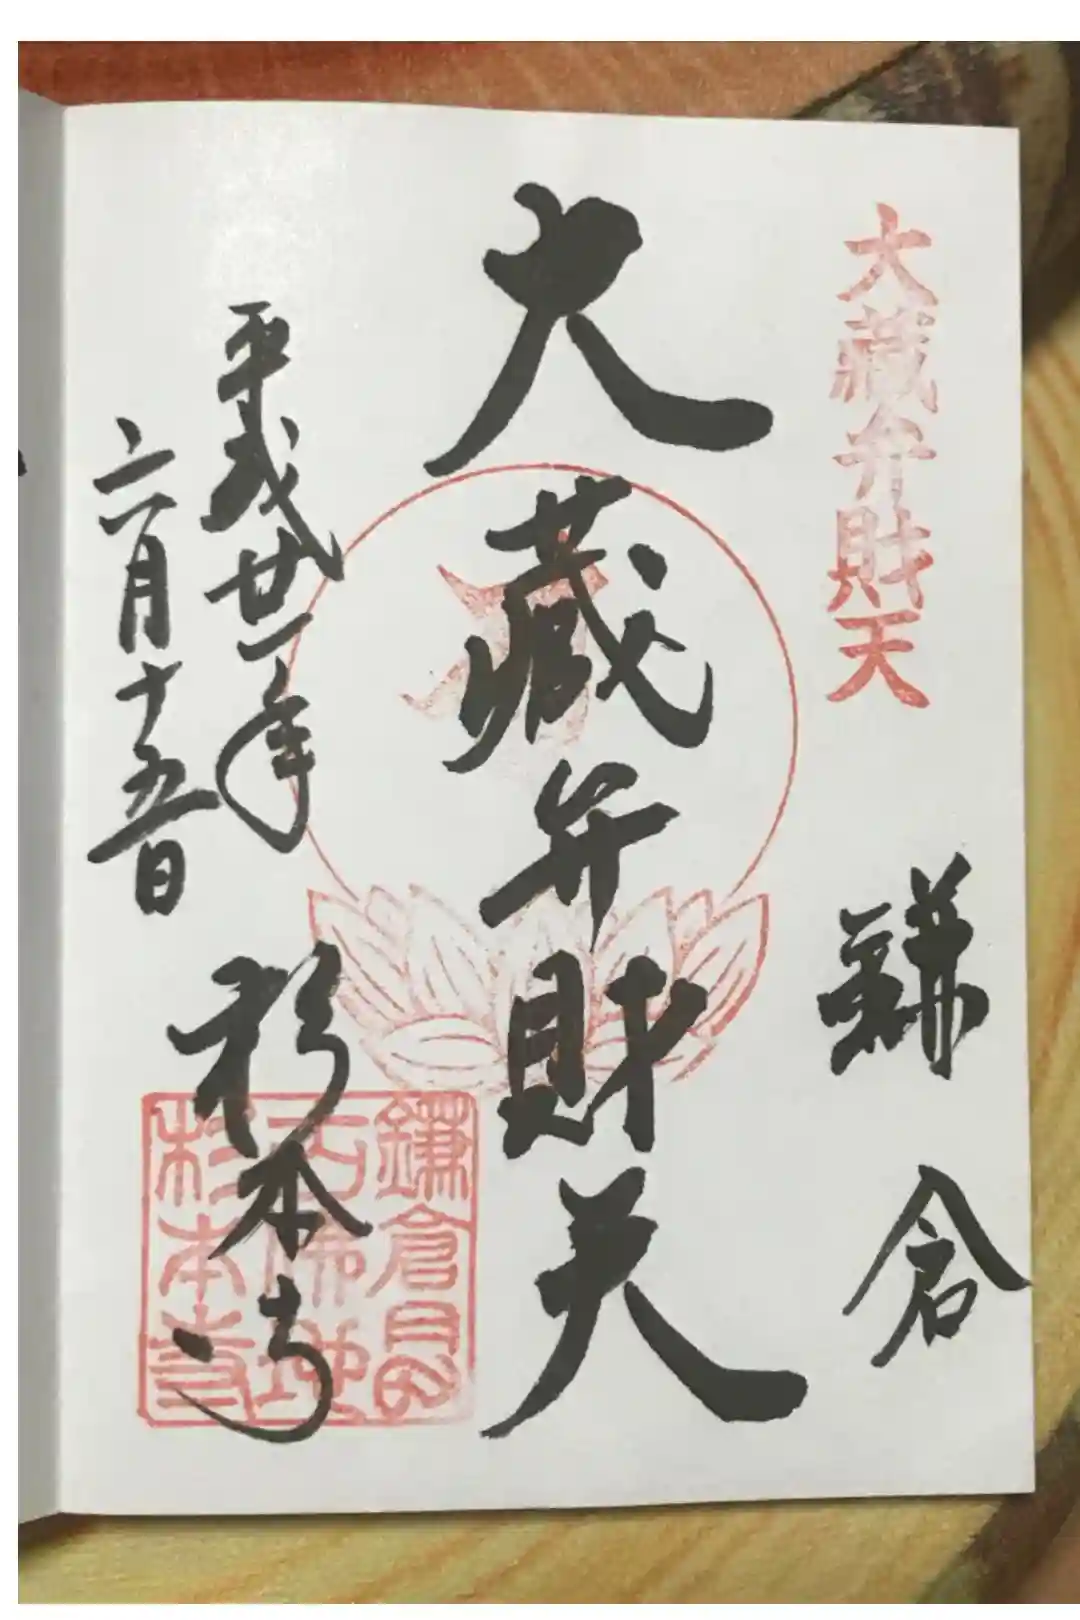 大藏弁財天
鎌倉
大藏弁財天
平成廿一年
六月十五日
杉本寺
鎌倉最
古佛地
杉本寺